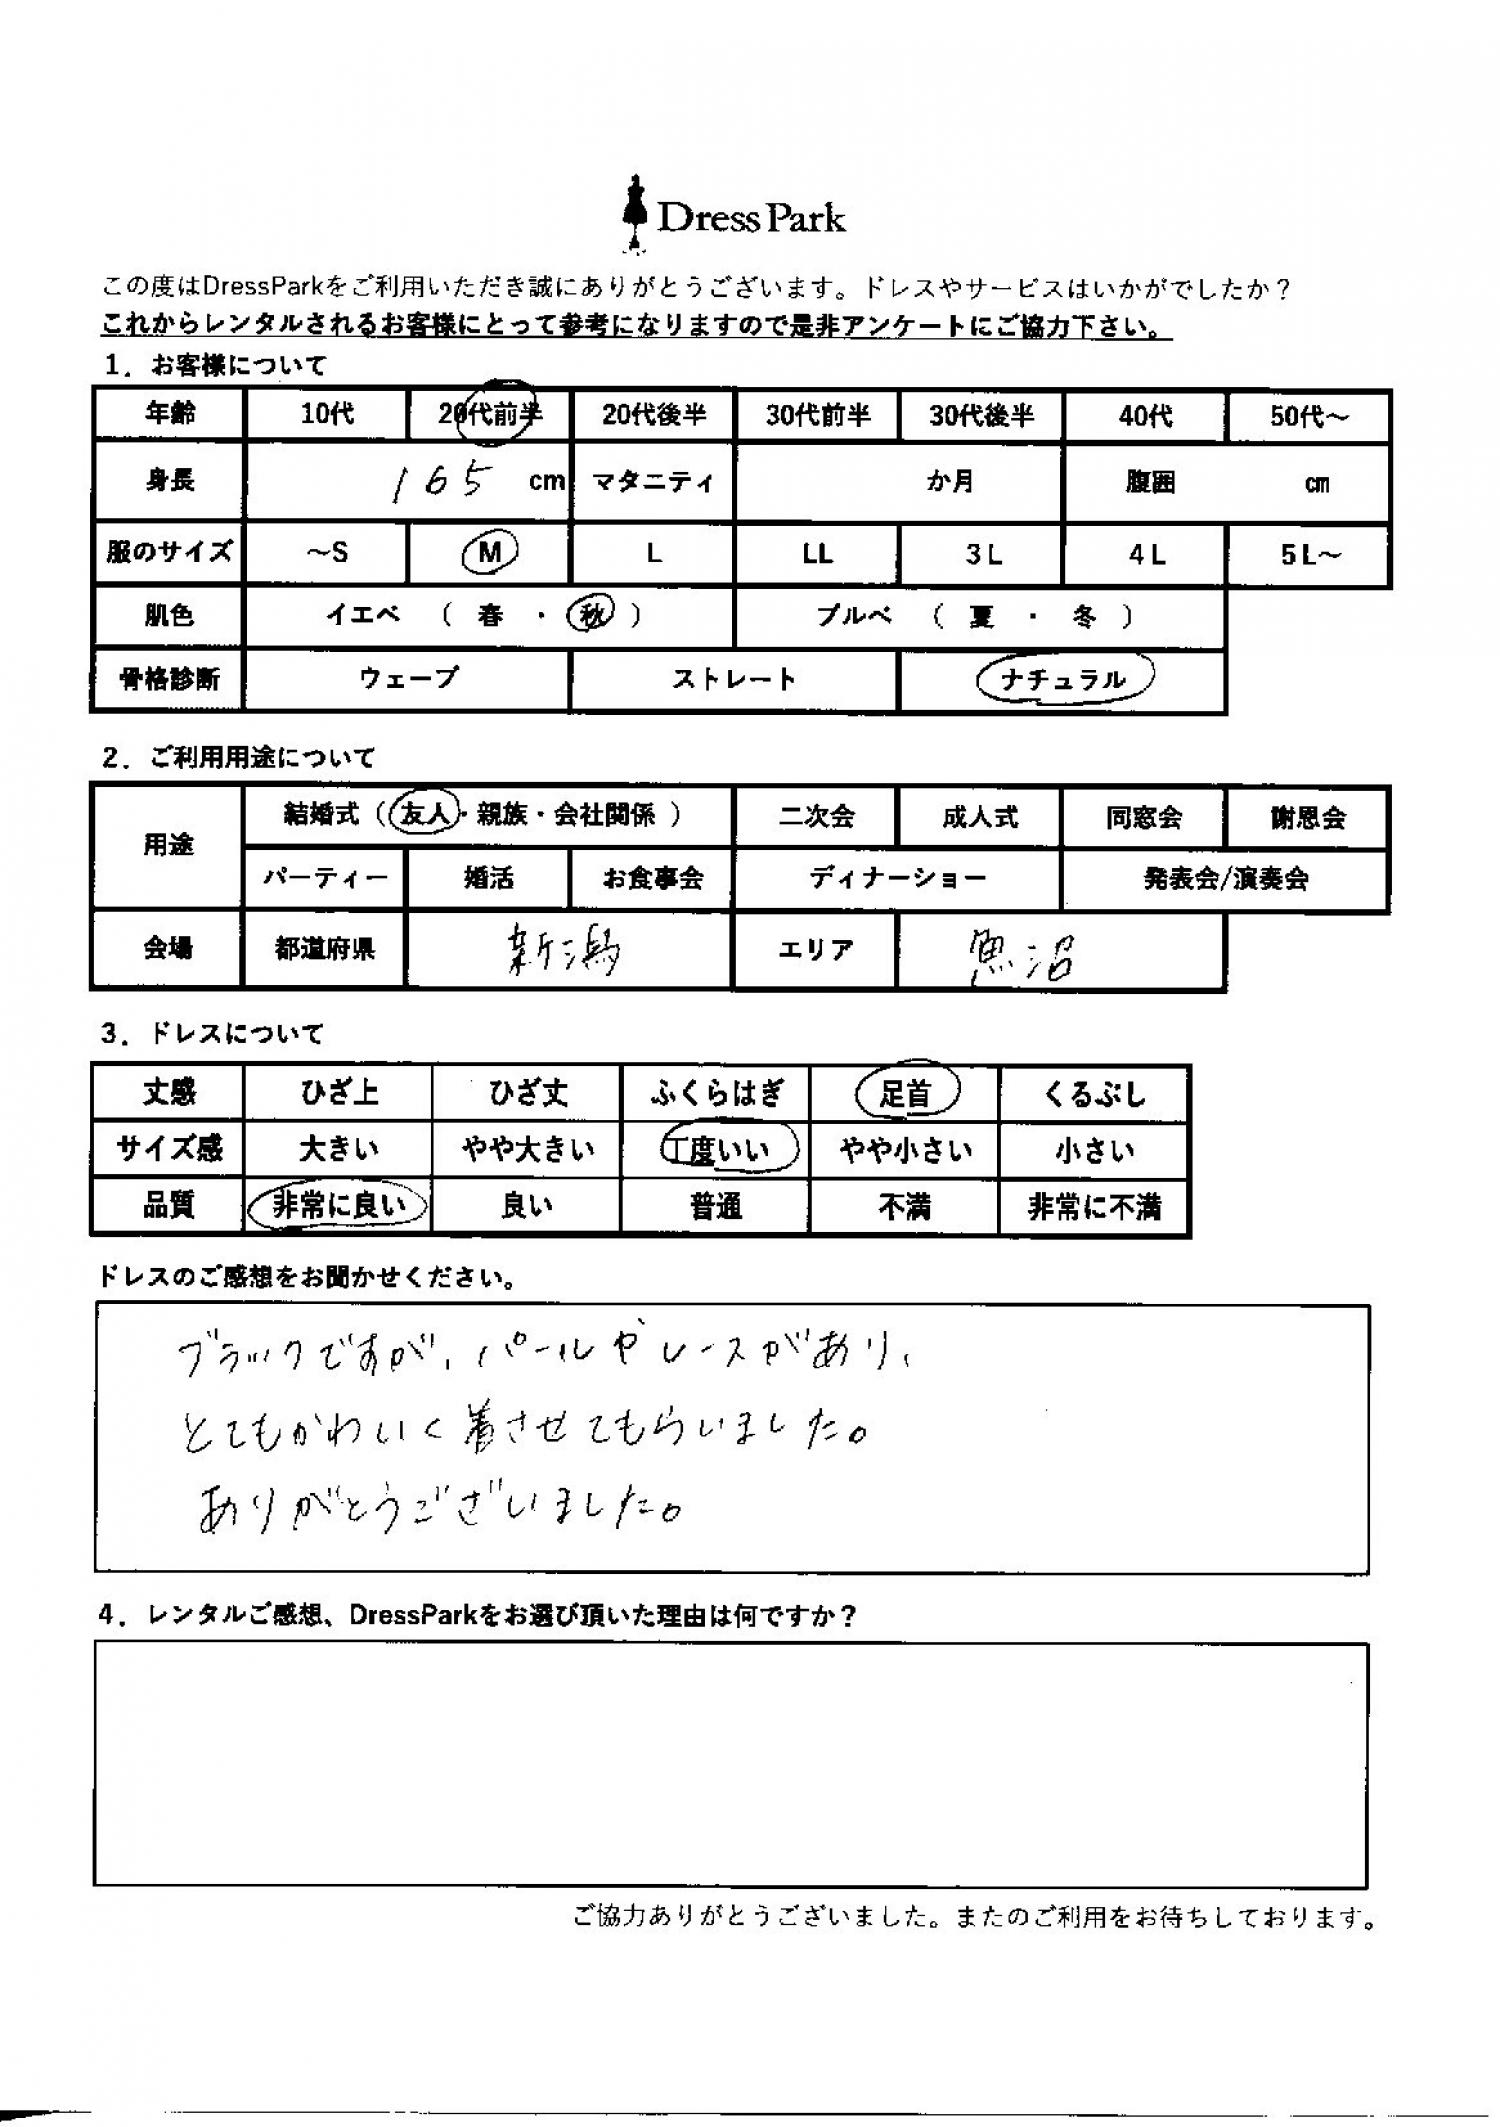 Dress Park
この度はDressParkをご利用いただき誠にありがとうございます。ドレスやサービスはいかがでしたか？
これからレンタルされるお客様にとって参考になりますので是非アンケートにご協力下さい。
1．お客様について
年齢 10代 20代前半 20代後半 30代前半 30代後半 40代 50代～
身長 165 cm マタニティ か月 腹囲 cm
服のサイズ ～S M L LL 3L 4L 5L～
肌色 イエベ （ 春 ・ 秋 ） ブルベ （ 夏 ・ 冬 ）
骨格診断 ウェーブ ストレート ナチュラル
2．ご利用用途について
用途 結婚式（ 友人・親族・会社関係 ） 二次会 成人式 同窓会 謝恩会
パーティー 婚活 お食事会 ディナーショー 発表会/演奏会
会場 都道府県 新潟 エリア 魚沼
3．ドレスについて
丈感 ひざ上 ひざ丈 ふくらはぎ 足首 くるぶし
サイズ感 大きい やや大きい 丁度いい やや小さい 小さい
品質 非常に良い 良い 普通 不満 非常に不満
ドレスのご感想をお聞かせください。
ブラックですが、パールやレースがあり、
とてもかわいく着させてもらいました。
ありがとうございました。
4．レンタルご感想、DressParkをお選び頂いた理由は何ですか？
ご協力ありがとうございました。またのご利用をお待ちしております。